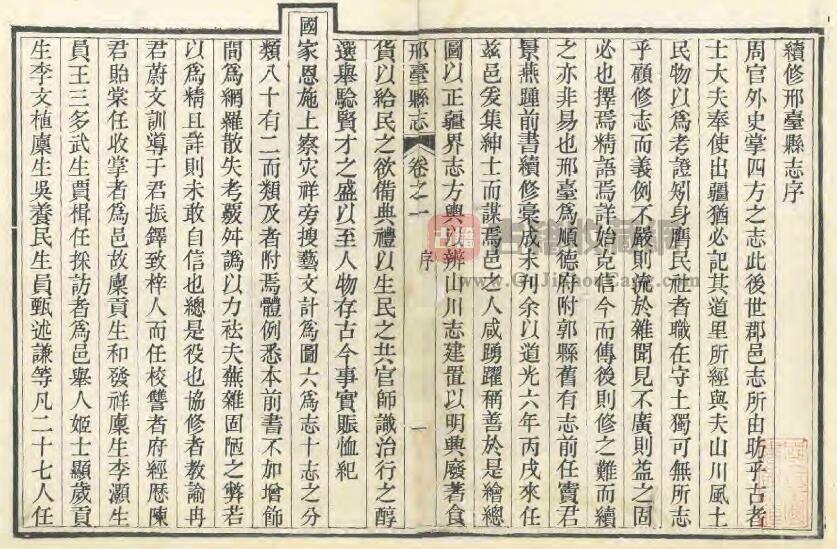 續修邢臺縣志序
周官外史掌四方之志此後世郡邑志所由昉乎古者
士大夫奉使出疆猶必記其道里所經與夫山川風土
民物以爲考證矧身膺民社者職在守土獨可無所志
乎顧修志而義例不嚴則流於雜聞見不廣則益之固
必也擇焉精語焉詳始克信今而傳後則修之難而續
之亦非易也邢臺爲順德府附郭縣舊有志前任竇君
景燕踵前書續修稾成未刋余以道光六年丙戌來任
茲邑爰集紳士而謀焉邑之人咸踴躍稱善於是繪總
圖以正疆界志方輿以辨山川志建置以明興廢著食
邢臺縣志 卷之一 序 一
貨以給民之欲備典禮以生民之共官師識治行之醇
選舉驗賢才之盛以至人物存古今事實賑恤紀
國家恩施上察灾祥旁搜藝文計爲圖六爲志十志之分
類八十有二而類及者附焉體例悉本前書不加增飾
間爲網羅散失考覈舛譌以力袪夫蕪雜固陋之弊若
以爲精且詳則未敢自信也總是役也協修者教諭冉
君蔚文訓導于君振鐸致梓人而任校讐者府經歴陳
君貽棠任收掌者爲邑故廩貢生和發祥廩生李灝生
員王三多武生賈楫任採訪者爲邑舉人姬士顯歲貢
生李文植廩生吳養民生員甄述謙等凡二十七人任
古籍
古籍收藏網
www.GuJiShouCang.com